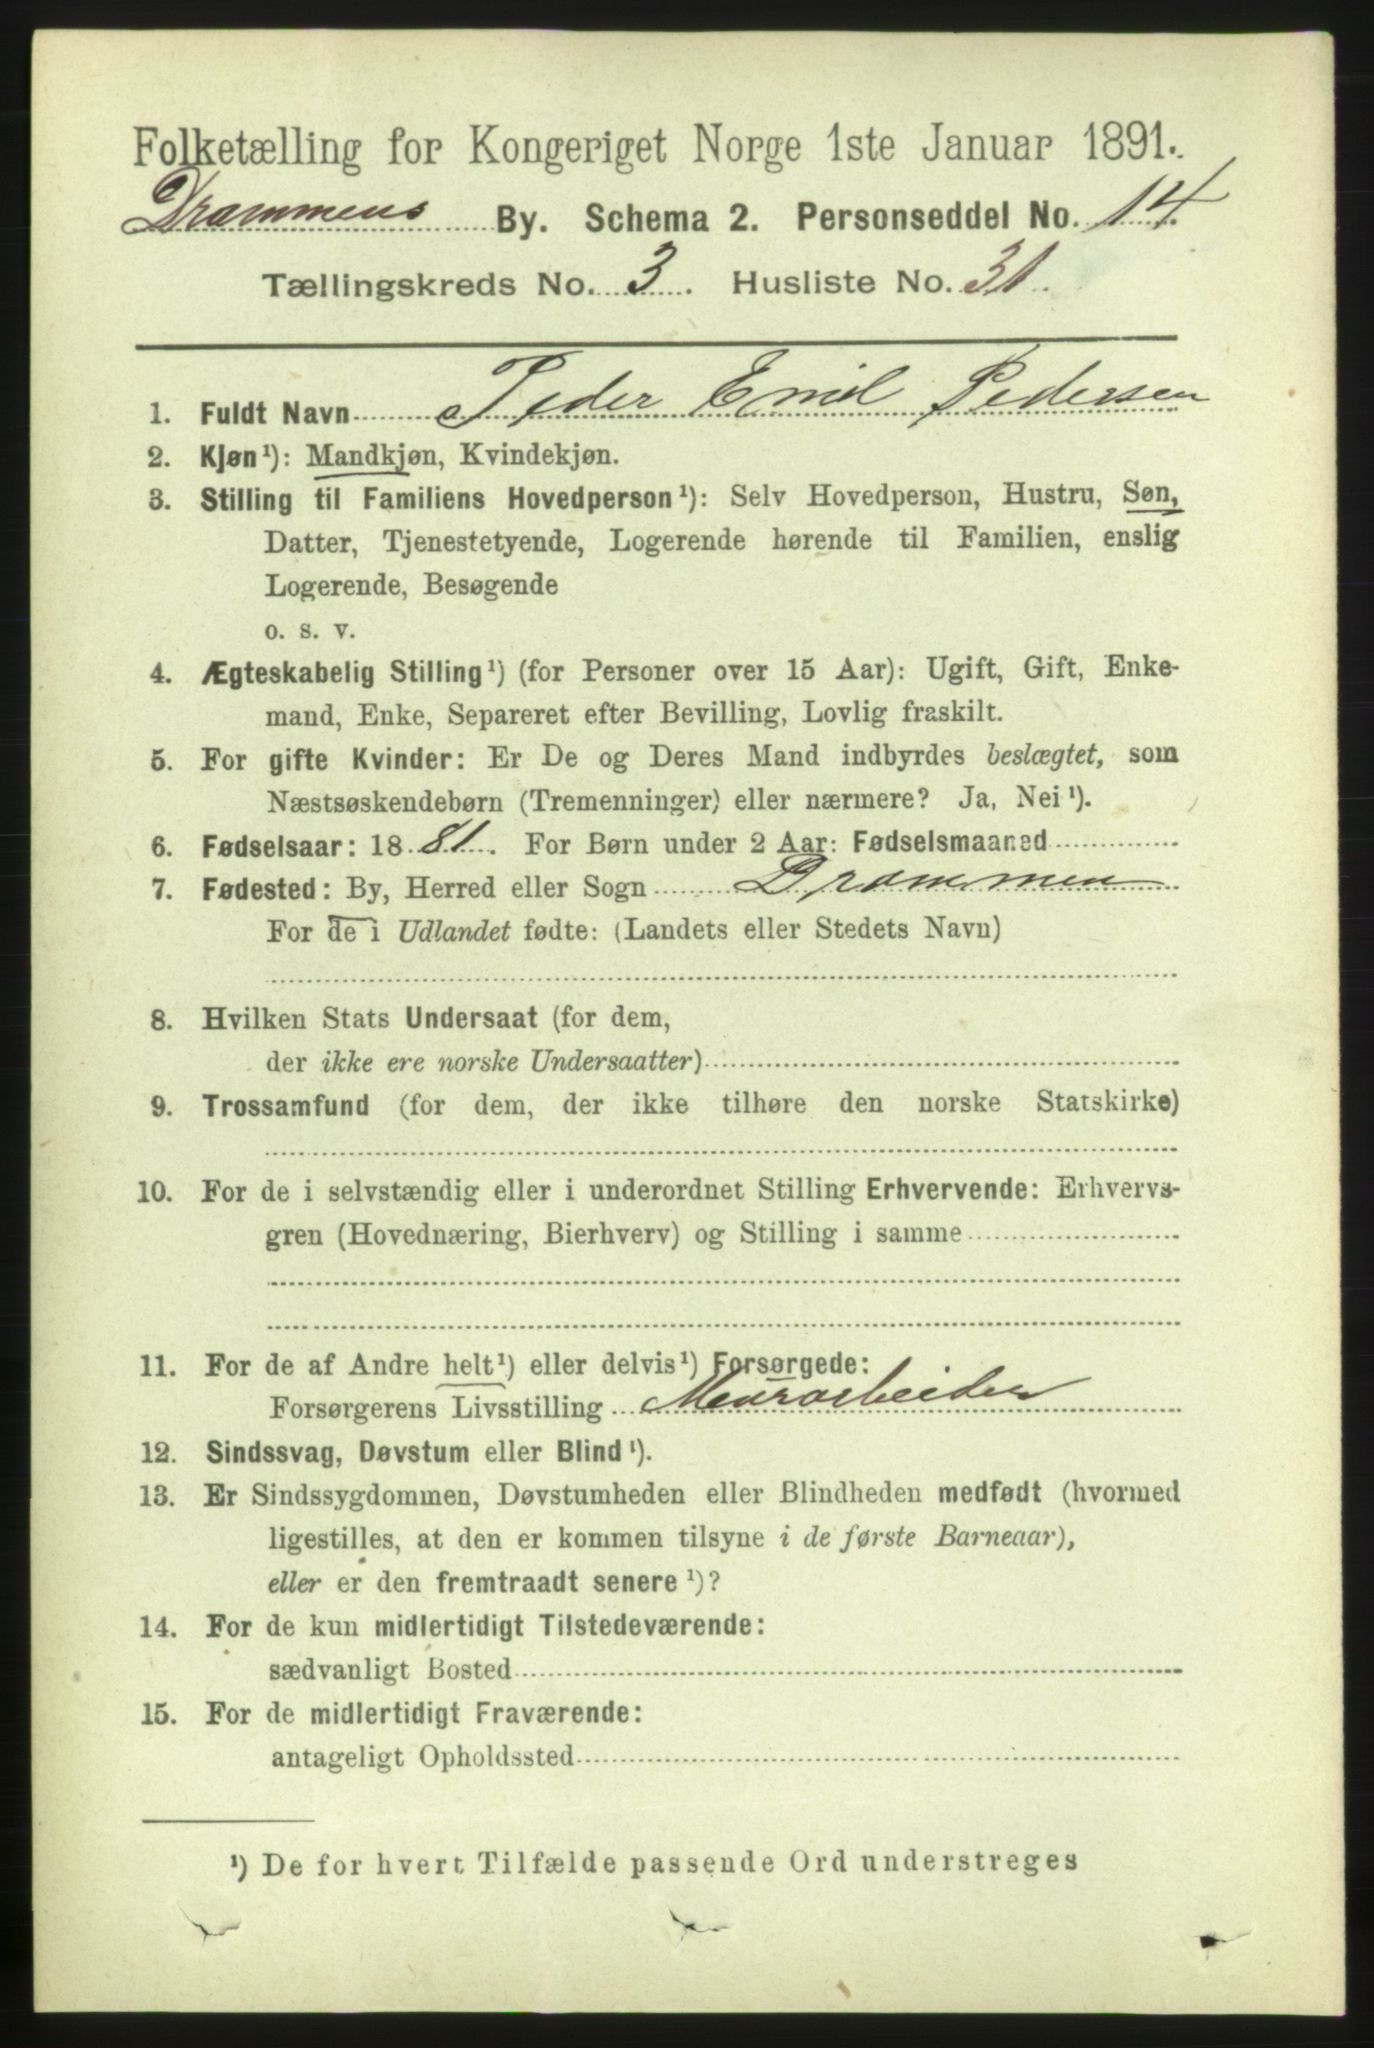 Folketælling for Kongeriget Norge 1ste Januar 1891.
Drammens By. Schema 2. Personseddel No. 14
Tællingskreds No. 3. Husliste No. 31.
1. Fuldt Navn Peder Emil Pedersen
2. Kjøn¹): Mandkjøn, Kvindekjøn.
3. Stilling til Familiens Hovedperson¹): Selv Hovedperson, Hustru, Søn,
Datter, Tjenestetyende, Logerende hørende til Familien, enslig
Logerende, Besøgende
o. s. v.
4. Ægteskabelig Stilling¹) (for Personer over 15 Aar): Ugift, Gift, Enke-
mand, Enke, Separeret efter Bevilling, Lovlig fraskilt.
5. For gifte Kvinder: Er De og Deres Mand indbyrdes beslægtet, som
Næstsøskendebørn (Tremenninger) eller nærmere? Ja, Nei¹).
6. Fødselsaar: 1881. For Børn under 2 Aar: Fødselsmaaned
7. Fødested: By, Herred eller Sogn Drammen
For de i Udlandet fødte: (Landets eller Stedets Navn)
8. Hvilken Stats Undersaat (for dem,
der ikke ere norske Undersaatter)
9. Trossamfund (for dem, der ikke tilhøre den norske Statskirke)
10. For de i selvstændig eller i underordnet Stilling Erhvervende: Erhvervs-
gren (Hovednæring, Bierhverv) og Stilling i samme
11. For de af Andre helt¹) eller delvis¹) Forsørgede:
Forsørgerens Livsstilling Murarbeider
12. Sindssvag, Døvstum eller Blind¹).
13. Er Sindssygdommen, Døvstumheden eller Blindheden medfødt (hvormed
ligestilles, at den er kommen tilsyne i de første Barneaar),
eller er den fremtraadt senere¹)?
14. For de kun midlertidigt Tilstedeværende:
sædvanligt Bosted
15. For de midlertidigt Fraværende:
antageligt Opholdssted
¹) De for hvert Tilfælde passende Ord understreges